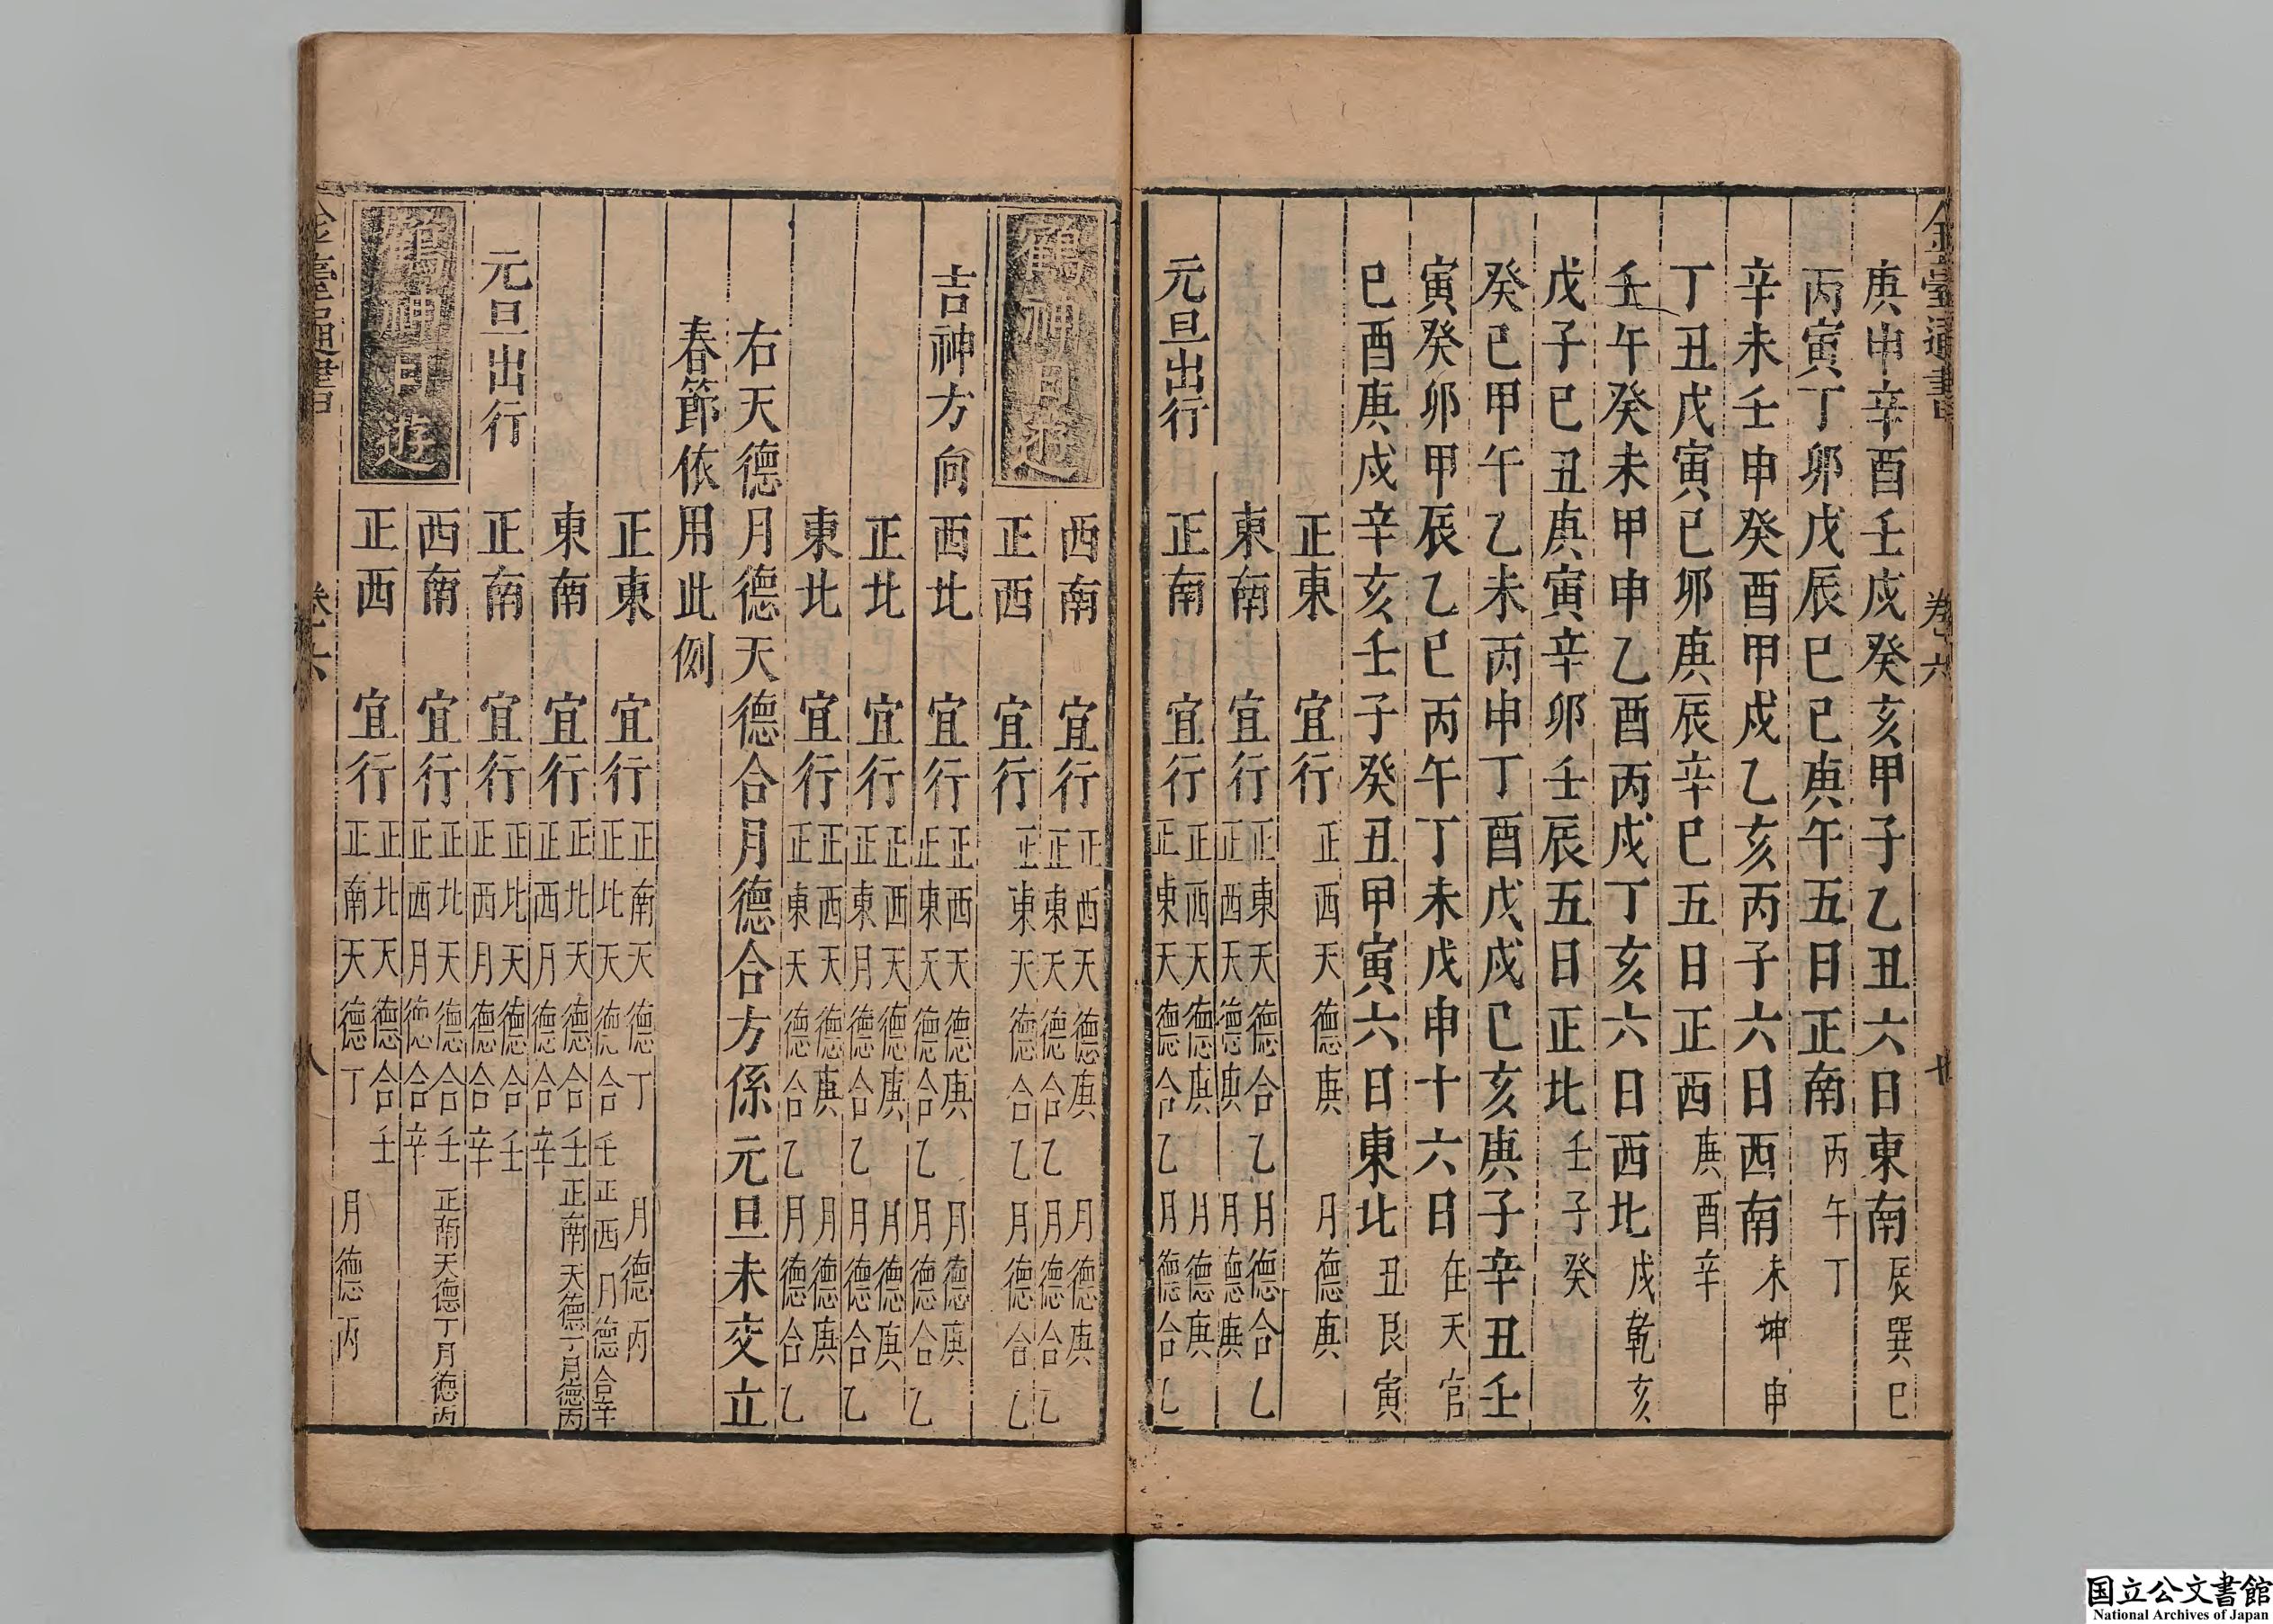 金臺通書
卷六
庚申辛酉壬戌癸亥甲子乙丑六日東南辰巽巳
丙寅丁卯戊辰巳巳庚午五日正南丙午丁
辛未壬申癸酉甲戌乙亥丙子六日西南未坤申
丁丑戊寅巳卯庚辰辛巳五日正西庚酉辛
壬午癸未甲申乙酉丙戌丁亥六日西北戌乾亥
戊子巳丑庚寅辛卯壬辰五日正北壬子癸
癸巳甲午乙未丙申丁酉戊戌巳亥庚子辛丑壬
寅癸卯甲辰乙巳丙午丁未戊申十六日在天官
巳酉庚戌辛亥壬子癸丑甲寅六日東北丑艮寅
正東 宜行 正西天德庚 月德庚
東南 宜行 正東天德合乙月德合乙
正西天德庚月德庚
元旦出行 正南 宜行 正西天德庚 月德庚
正東天德合乙月德合乙
西南 宜行 正西天德庚 月德庚
正東天德合乙月德合乙
鶴神日遊 正西 宜行 正東天德合乙月德合乙
吉神方向 西北 宜行 正西天德庚 月德庚
正東天德合乙月德合乙
正北 宜行 正西天德庚 月德庚
正東月德合乙月德合乙
東北 宜行 正西天德庚 月德庚
正東天德合乙月德合乙
右天德月德天德合月德合方係元旦未交立
春節依用此例
正東 宜行 正南天德丁 月德丙
正北天德合壬正西月德合辛
東南 宜行 正北天德合壬正南天德丁月德丙
正西月德合辛
元旦出行 正南 宜行 正北天德合壬
正西月德合辛
西南 宜行 正北天德合壬正南天德丁月德丙
正西月德合辛
鶴神日遊 正西 宜行 正北天德合壬
正南天德丁 月德丙
金臺通書
卷六
八
国立公文書館
National Archives of Japan